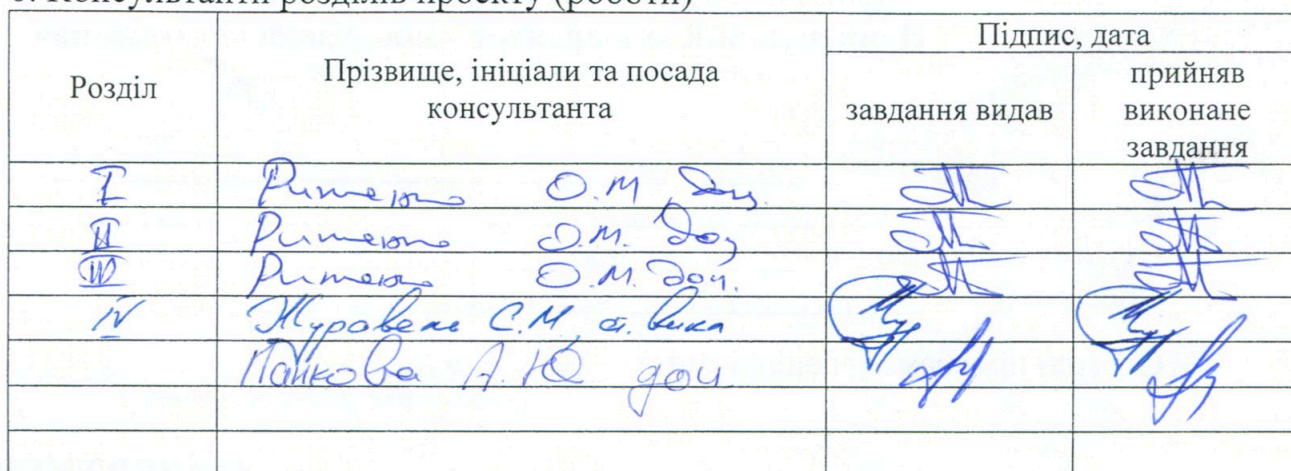 6. Консультанти розділів проекту (роботи)
Розділ
Прізвище, ініціали та посада
консультанта
Підпис, дата
завдання видав
прийняв
виконане
завдання
I О.М. доц.
II О.М. доц
III О.М. доц.
IV Журавель С.М. ст. викл
Панкова А.Ю доц